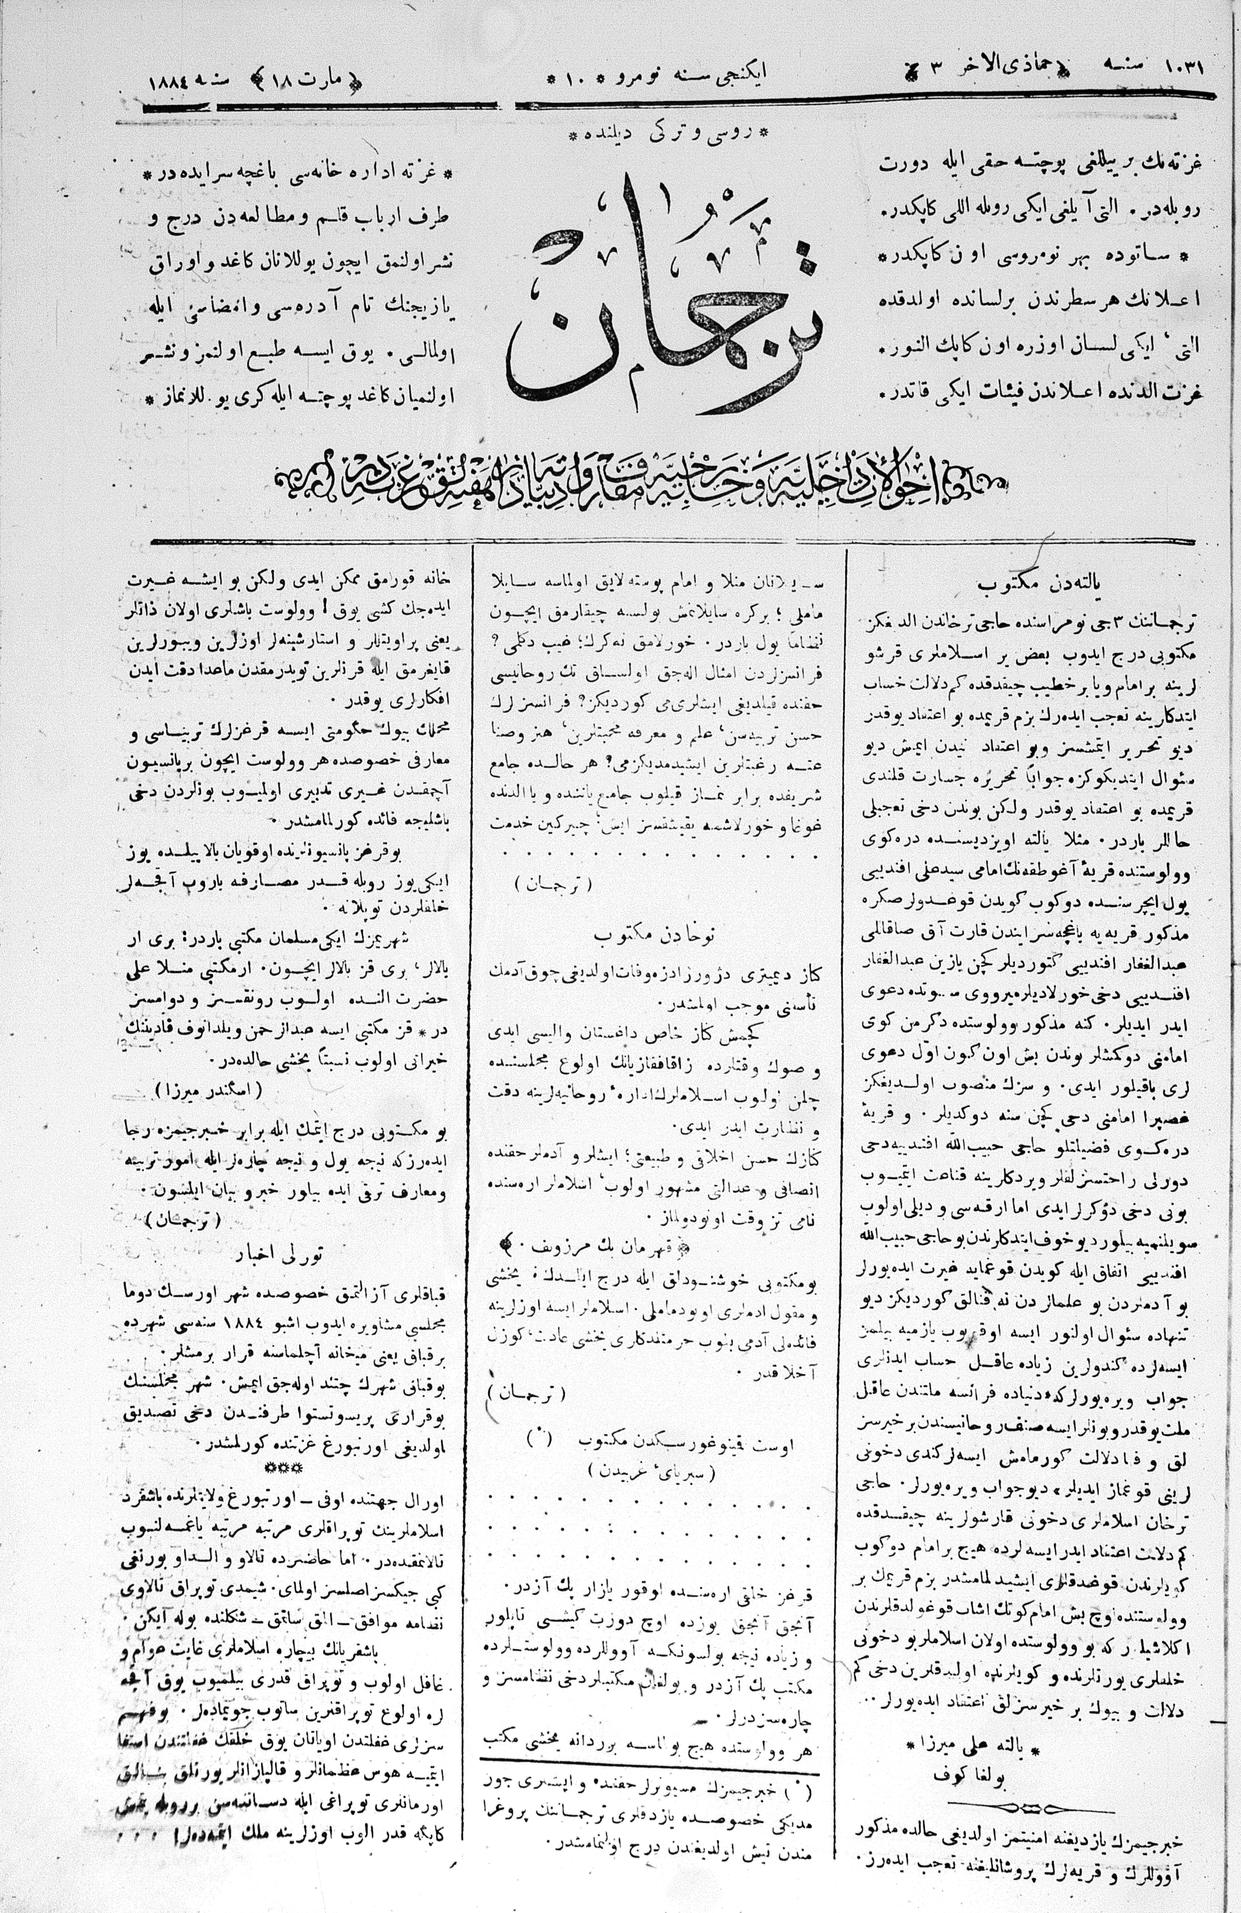 ١٠٣١ سنه ﴿ جماذى الاخر ٣ ﴾
ايكنجى سنه نومرو * ١٠ *
﴿ مارت ١٨ ﴾ سنه ١٨٨٤
* روسى و تركى ديلنده *
غزته‌نك بر ييللغى پوچته حقى ايله دورت
روبله‌در. التى آيلغى ايكى روبله اللى كاپكدر.
* ساتوده بهر نومروسى اون كاپكدر *
اعلانك هر سطرندن بر لسانده اولدقده
التى، ايكى لسان اوزره اون كاپك النور.
غزت الدنده اعلاندن فيئات ايكى قاتدر.
ترجمان
* غزته اداره خانه‌سى باغچه سرايده‌در *
طرف ارباب قلم و مطالعه‌دن درج و
نشر اولنمق ايچون يوللانان كاغد و اوراق
يازيجنك تام آدره‌سى و امضاسى ايله
اولمالى. يوق ايسه طبع اولنمز و نشر
اولنميان كاغد پوچته ايله كرى يوللانماز *
يالته‌دن مكتوب
ترجماننك ٣جى نومراسنده حاجى ترخاندن الديغكز
مكتوبى درج ايدوب بعض ير اسلاملرى قرشو
لرينه بر امام ويا بر خطيب چيقدقده كم دلالت حساب
ايتدكلرينه تعجب ايده‌رك بزم قريمده بو اعتقاد يوقدر
ديو تحرير ايتمشسز وبو اعتقاد نيدن ايمش ديو
سئوال ايتديكوكزه جوابا تحريره جسارت قلندى
قريمده بو اعتقاد يوقدر ولكن بوندن دخى تعجبلى
حاللر باردر. مثلا يالته اويزديسنده دره‌كوى
وولوستنده قريهٔ آغوطقه‌نك امامى سيد على افندييى
يول ايچرسنده دوكوب كويدن قوغدولر صكره
مذكور قريه‌يه باغچه سرايندن قارت آق صاقاللى
عبدالغفار افندييى كتورديلر كچن يازين عبدالغفار
افندييى دخى خورلاديلر ميرووى سودده دعوى
ايدر ايديلر. كنه مذكور وولوستده دكرمن كوى
امامنى دوكمشلر بوندن بش اون كون اول دعوى
لرى باقيلور ايدى. و سزك منصوب اولديغكز
غصپرا امامنى دخى كچن سنه دوكديلر. و قريهٔ
دره‌كوى فضيلتلو حاجى حبيب الله افندييه‌دخى
دورلى راحتسزلقلر ويردكلرينه قناعت ايتميوب
بونى دخى دوكرلر ايدى اما ارقه‌سى و ديلى اولوب
سويلنميه بيلور ديو خوف ايتدكلرندن بو حاجى حبيب الله
افندييى اتفاق ايله كويدن قوغمايه غيرت ايده‌يورلر
بو آدملردن بو علمالردن نه فنالق كورديكز ديو
تنهاده سئوال اولنور ايسه اوقويوب يازميه بيلمز
ايسه‌لرده كندولرين زياده عاقل حساب ايدنلرى
جواب ويره‌يورلر كه دنياده فرانسه ملتندن عاقل
ملت يوقدر و بونلر ايسه صنف روحانيسندن بر خيرسز
لق و فنا دلالت كورمامش ايسه‌لر كندى دخونى
لرينى قوغماز ايديلر، ديو جواب ويره‌يورلر. حاجى
ترخان اسلاملرى دخونى قارشولرينه چيقدقده
كم دلالت اعتقاد ايدر ايسه‌لرده هيچ بر امام دوكوب
كويلرندن قوغدقلرى ايشيدلمامشدر بزم قريمك بر
وولوستنده اوچ بش امام كوتك اشاب قوغولدقلرندن
اكلاشيلور كه بو وولوستده اولان اسلاملر بو دخونى
خلقلرى يورتلرنده و كويلرنده اولدقلرين دخى كم
دلالت و بيوك بر خيرسزلق اعتقاد ايده‌يورلر...
* يالته على ميرزا *
بولغا كوف
خبرجيمزك يازديغنه امنيتمز اولديغى حالده مذكور
آووللرك و قريه‌لرك پروشانليغنه تعجب ايده‌رز.
سايلانان منلا و امام پوسته لايق اولماسه سايلا
ماملى؛ بركره سايلانمش بولسه چيقارمق ايچون
نظاما يول باردر. خورلامق نه‌كرك؛ عيب دكلمى؟
فرانسزلردن امثال اله‌جق اولساق نك روحانيسى
حقنده قيلديغى ايشلرى‌مى كورديكز؟ فرانسزلرك
حسن تربيه‌سن، علم و معرفه محبتلرين، هنر و صنا
عته رغبتلرين ايشيدمديكزمى؟ هر حالده جامع
شريفده برابر نماز قيلوب جامع ياننده و يا الدنده
غوغا و خورلاشمه يقيشقسز ايش؛ چيركين خدمت
(ترجمان)
نوخادن مكتوب
كناز ديميترى دژورژادزه وفات اولديغى چوق آدمك
تأسفنى موجب اولمشدر.
كچمش كناز خاص داغستان واليسى ايدى
و صوك وقتلرده زاقافقازيانك اولوغ مجلسنده
چلن اولوب اسلاملرك اداره‌ٔ روحانيه‌لرينه دقت
و نظارت ايدر ايدى.
كنازك حسن اخلاقى و طبيعتى؛ ايشلر و آدملر حقنده
انصافى و عدالتى مشهور اولوب، اسلاملر اره‌سنده
نامى تز وقت اونودولماز.
﴿ قهرمان بك مرزوف. ﴾
بو مكتوبى خوشنوداق ايله درج ايلدك، يخشى
و مقول ادملرى اونودماملى. اسلاملر ايسه اوزلرينه
فائده‌لى آدمى بنوب حرمتدكارى يخشى عادت، كوزل
آخلاقدر.
(ترجمان)
اوست قينوغورسكدن مكتوب (*)
(سبرياى غربيدن)
قرغز خلقى اره‌سنده اوقور يازار پك آزدر.
آنجق آنجق يوزده اوچ دورت كيشى تابلور
و زياده نيچه بولسونكه آووللرده وولوستلرده
مكتب پك آزدر و بولغان مكتبلر دخى نظامسز و
چاره‌سزدرلر.
هر وولوستده هيچ بولماسه بوردانه يخشى مكتب
(*) خبرجيمزك ميسيونرلر حقنده و ايشلرى جوز
مديكى خصوصده يازدقلرى ترجماننك پروغرا
مندن تيش اولديغندن درج اولنمامشدر.
خانه قورامق ممكن ايدى ولكن بو ايشه غيرت
ايده‌جك كشى يوق! وولوست باشلرى اولان ذاتلر
يعنى پراويتللر و استارشينه‌لر اوزلرين ويبورلرين
قايغرمق ايله قرنلرين تويدرمقدن ماعدا دقت ايدن
افكارلرى يوقدر.
محلك بيوك حكومتى ايسه قرغزلرك تربياسى و
معارفى خصوصده هر وولوست ايچون بر پانسيون
آچمقدن غيرى تدبيرى اولميوب بونلردن دخى
باشليجه فائده كورلمامشدر.
بو قرغز پانسيونلرنده اوقويان بالا ييلده يوز
ايكى يوز روبله قدر مصارفه باروب آقچه‌لر
خلقلردن توپلانه.
شهريمزك ايكى مسلمان مكتبى باردر: برى ار
بالالر، برى قز بالالر ايچون. ار مكتبى منلا على
حضرت النده اولوب رونقسز و دوامسز
در. قز مكتبى ايسه عبدالرحمن ويلدانوف قادينك
خيراتى اولوب نسبتاً يخشى حالده‌در.
(اسكندر ميرزا)
بو مكتوبى درج ايتمك ايله برابر خبرجيمزه رجا
ايده‌رز كه نيجه يول و نيجه چاره‌لر ايله امور تربيه
ومعارف ترقى ايده بيلور خبر و بيان ايلشون.
(ترجمان)
تورلى اخبار
قباقلرى آزالتمق خصوصده شهر اورسك دوما
مجلسى مشاوره ايدوب اشبو ١٨٨٤ سنه‌سى شهرده
بر قباق يعنى ميخانه آچلماسنه قرار برمشلر.
بو قباق شهرك چتنده اوله‌جق ايمش. شهر مجلسنك
بو قرارى پريسوتستوا طرفندن دخى تصديق
اولديغى اورنبورغ غزتنده كورلمشدر.
***
اورال جهتنده اوفى ـ اورنبورغ ولايتلرنده باشقرد
اسلاملرينك توپراقلرى مرتبه مرتبه ياغمه‌لنوب
تالانمقده‌در. اما حاضرده تالاو و الداو بورنغى
كبى جيكسز اصلسز اولماى. شيمدى توپراق تالاوى
نظامه موافق ـ الق ساتق ـ شكلنده بوله آيكن.
باشقريانك بيچاره اسلاملرى غايت عوام و
غافل اولوب و توپراق قدرى بيلميوب يوق آقچه
لره اولوغ توپراقنرين ساتوب جويمادلر. بو فهم
سزلرى غفلتدن اوياتان يوق خلقك غفلتندن استفا
ايتميه هوس عظمانلر و قالپازانلر يورتلق بنالق
اورمانلرى توپراغى ايله دساتنه‌سن بر روبله يكرمى
كاپكه قدر الوب اوزلرينه ملك ايتمده‌لر! ...